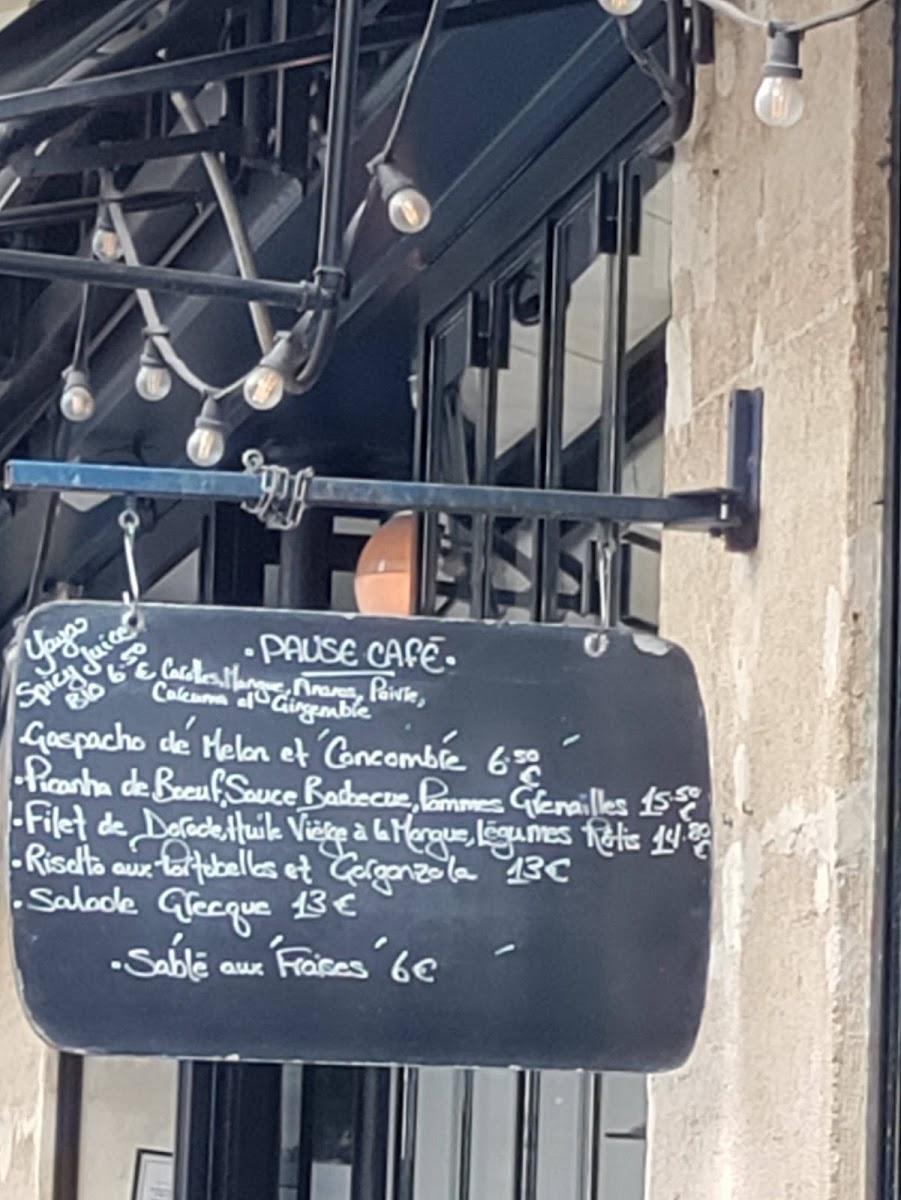 • PAUSE CAFÉ •
Yaya
Spicy Juice
BIO 6.50 € Carottes, Mangue, Ananas, Poivre,
Curcuma et Gingembre
• Gaspacho de Melon et Concombre 6.50 €
• Picanha de Boeuf, Sauce Barbecue, Pommes Grenailles 15.50 €
• Filet de Dorade, Huile Vierge à la Mangue, Légumes Rôtis 14.80 €
• Risotto aux Portobelles et Gorgonzola 13 €
• Salade Grecque 13 €
• Sablé aux Fraises 6 €